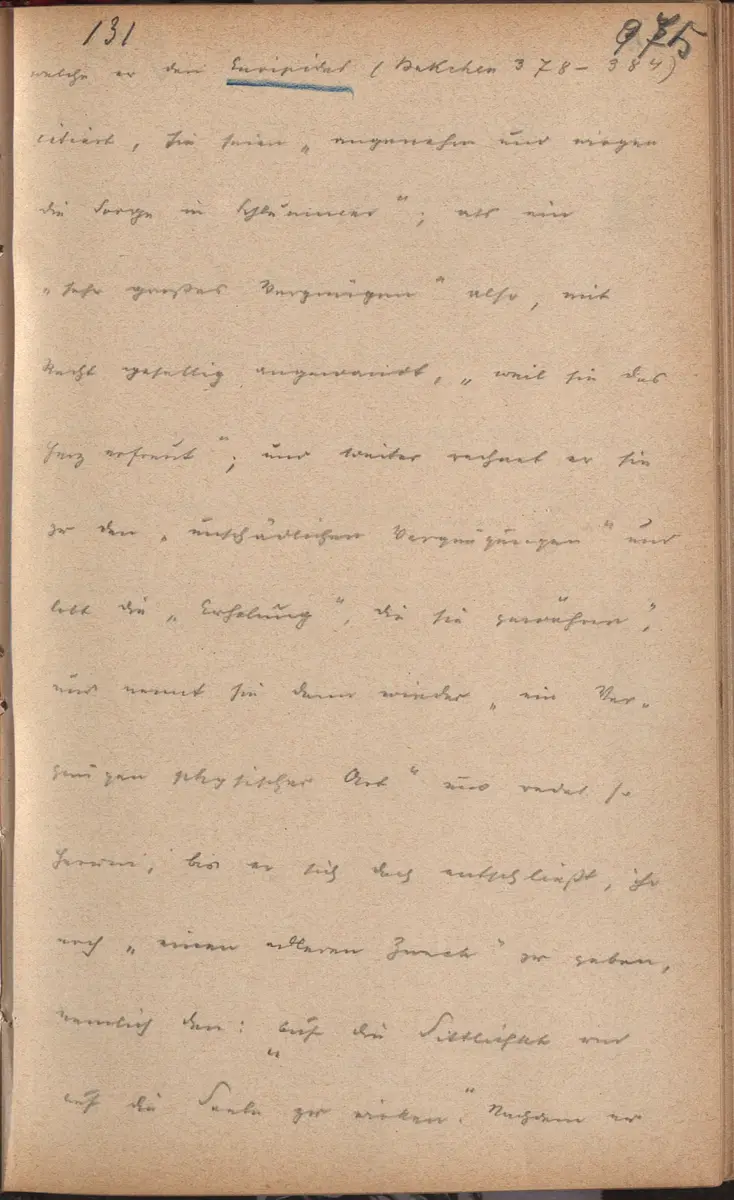 131 975
welche er den Euripides (Bakchen 378-384)
citiert, sie seien „angenehm und wiegen
die Sorge in Schlummer"; als ein
„sehr großes Vergnügen" also, mit
Recht gesellig angewandt, „weil sie das
Herz erfreut"; und weiter rechnet er sie
zu den „unschädlichen Vergnügungen" und
lobt die „Erholung", die sie gewähren,
und nennt sie dann wieder „ein Ver-
gnügen physischer Art" und redet so
herum, bis er sich doch entschließt, ihr
noch „einen edleren Zweck" zu geben,
nemlich den: „auf die Sittlichkt und
auf die Seele zu wirken." Nachdem er